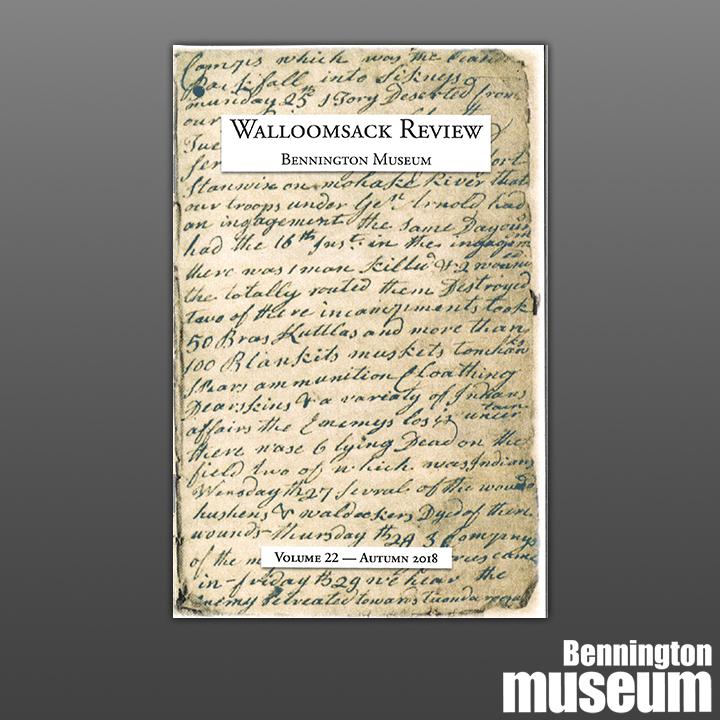 Comps which was the
Part fall into Sikness
munday 25th 1 Tory Deserted from
our
WALLOOMSACK REVIEW
BENNINGTON MUSEUM
Tue
Ser fort
Stanwix on mohake River that
our troops under Genll Arnold had
an ingagement the same Day our
had the 16th Inst. in the ingagem
there was 1 man killed & 2 wound
the totally routed them Destroyed
two of there incampments took
50 Bras Kuttlas and more than
100 Blankits muskits tomhan
Spears ammunition Cloathing
Dearskins & a variaty of Indians
affairs the Enemys los is uncer tain
there wase 6 lying Dead on the
field two of which was Indians
Wensday th 27 sevral of the wound
hushens & waldeckers Dyed of their
wounds thursday th 28 3 Companys
of the m came
VOLUME 22 — AUTUMN 2018
in - friday th 29 we hear the
Enemy Retreated towards
Bennington
museum